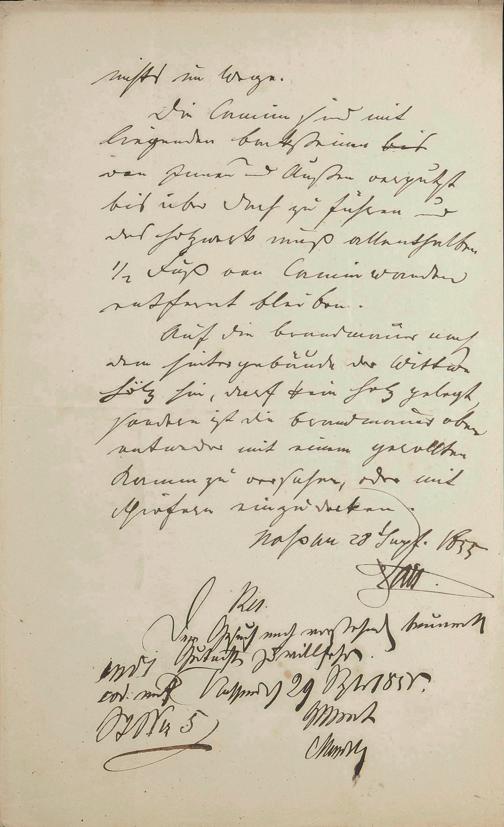 nichts im Wege.
Die Camine sind mit
liegenden Backsteinen bis
von Innen und Außen verputzt
bis über Dach zu führen und
das Holzwerk muß allenthalben
1/2 Fuß von Caminwanden
entfernt bleiben.
Auf die Brandmauer nach
dem Hintergebäude der Wittwe
hin, darf kein Holz gelegt
sondern ist die Brandmauer oben
entweder mit einem gerollten
Kamm zu versehen, oder mit
Schiefern einzudecken.
Nassau 28 Sept. 1855
Res.
Dem Gesuch nach vorstehend
Gutachten zu willfahren.
29 1855.
No 5